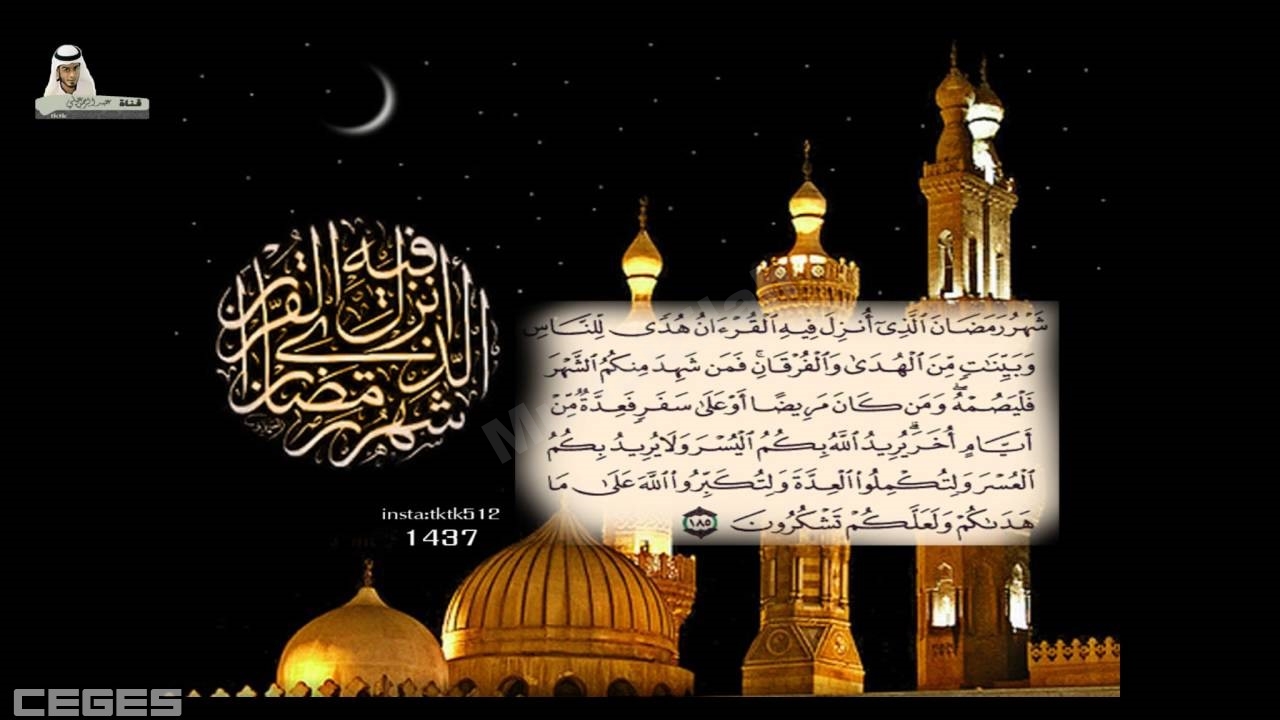 قناة
tktk
شهر رمضان الذي أنزل فيه القرآن
شَهْرُ رَمَضَانَ ٱلَّذِىٓ أُنزِلَ فِيهِ ٱلْقُرْءَانُ هُدًى لِّلنَّاسِ
وَبَيِّنَٰتٍ مِّنَ ٱلْهُدَىٰ وَٱلْفُرْقَانِۚ فَمَن شَهِدَ مِنكُمُ ٱلشَّهْرَ
فَلْيَصُمْهُۖ وَمَن كَانَ مَرِيضًا أَوْ عَلَىٰ سَفَرٍ فَعِدَّةٌ مِّنْ
أَيَّامٍ أُخَرَۗ يُرِيدُ ٱللَّهُ بِكُمُ ٱلْيُسْرَ وَلَا يُرِيدُ بِكُمُ
ٱلْعُسْرَ وَلِتُكْمِلُوا۟ ٱلْعِدَّةَ وَلِتُكَبِّرُوا۟ ٱللَّهَ عَلَىٰ مَا
هَدَىٰكُمْ وَلَعَلَّكُمْ تَشْكُرُونَ ١٨٥
insta:tktk512
1437
CEGES